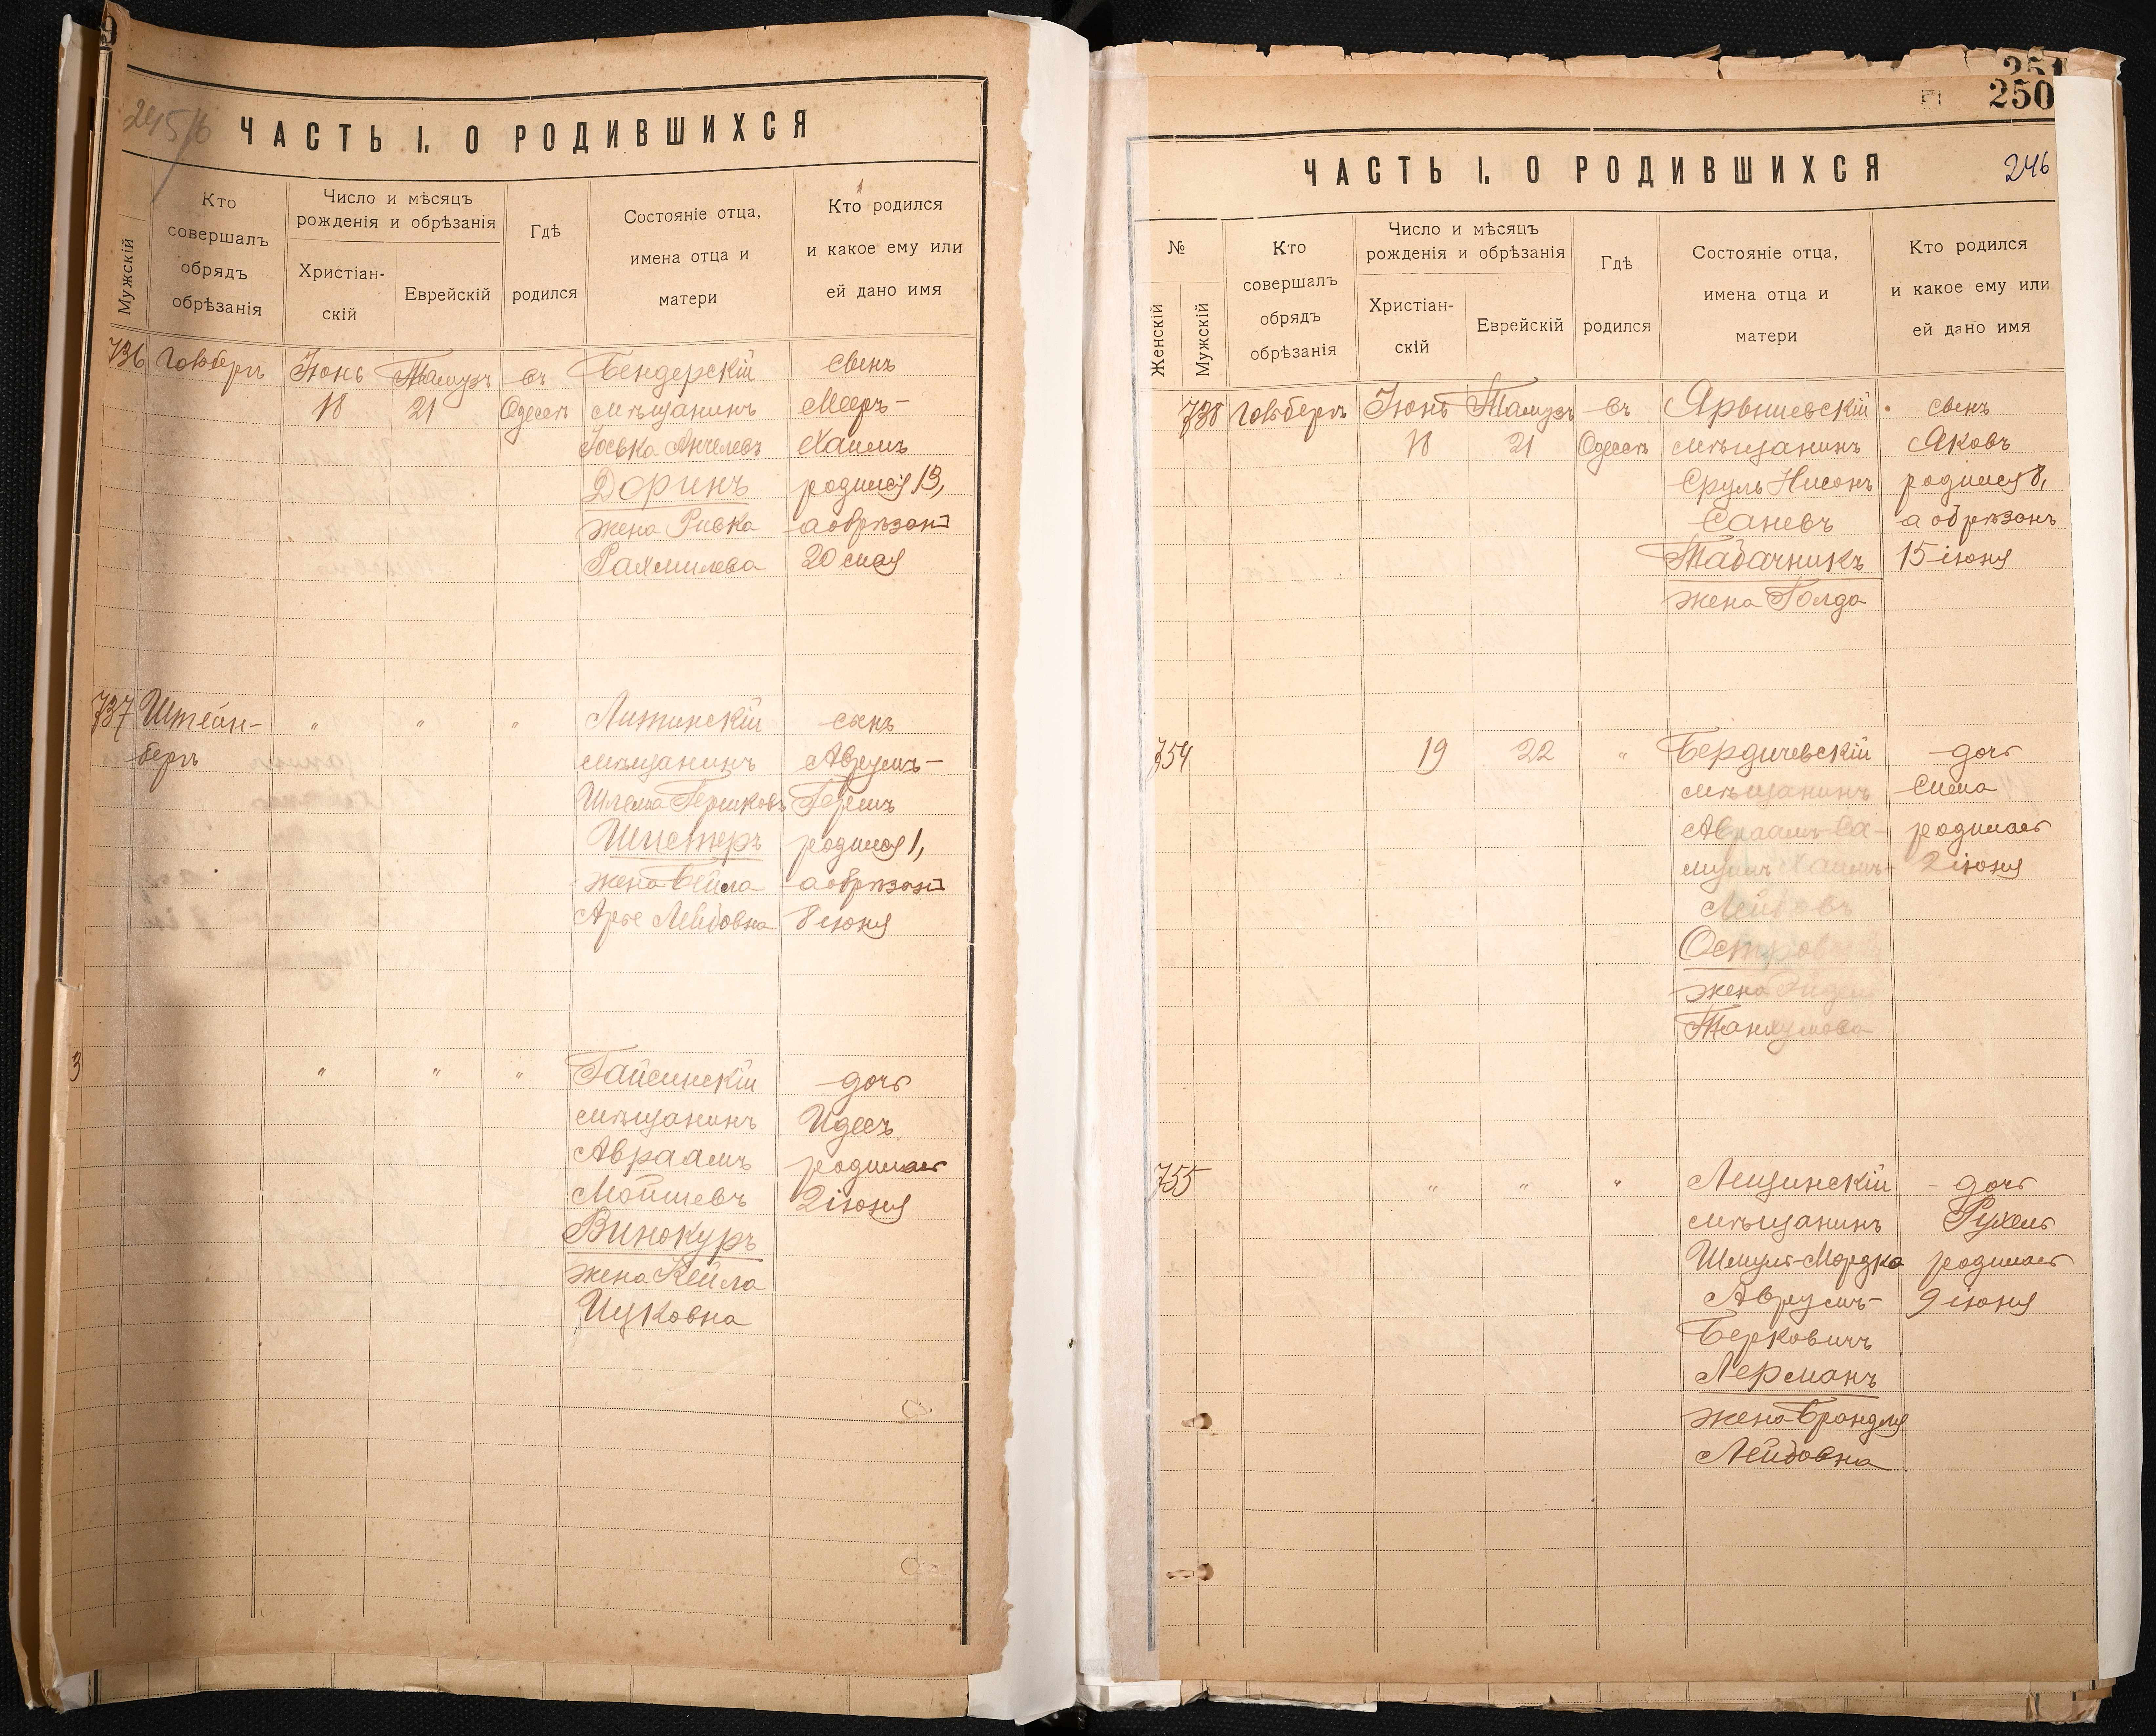 245
ЧАСТЬ I. О РОДИВШИХСЯ
Мужскій
Кто
совершалъ
обрядъ
обрѣзанія
Число и мѣсяцъ
рожденія и обрѣзанія
Христіан-
скій
Еврейскій
Гдѣ
родился
Состояніе отца,
имена отца и
матери
Кто родился
и какое ему или
ей дано имя
736 Іюнь Тамузъ въ Бендерскій сынъ
18 21 Одессѣ мѣщанинъ Мееръ-
Іоська Анчелевъ Хаимъ
Доринъ родился 13,
жена Ривка а обрѣзанъ
Рахмилева 20 мая
737 Штейн- " " " Литинскій сынъ
бергъ мѣщанинъ Аврумъ-
Шлема Гершковъ Гершъ
Шистеръ родился 1,
жена Бейла а обрѣзанъ
Арье Лейбовна 8 іюня
3 " " " Гайсинскій дочь
мѣщанинъ Идесъ
Авраамъ родилась
Мошиевъ 2 іюня
Винокуръ
жена Кейла
Ицковна
251
250
ЧАСТЬ I. О РОДИВШИХСЯ 246
№
Женскій
Мужскій
Кто
совершалъ
обрядъ
обрѣзанія
Число и мѣсяцъ
рожденія и обрѣзанія
Христіан-
скій
Еврейскій
Гдѣ
родился
Состояніе отца,
имена отца и
матери
Кто родился
и какое ему или
ей дано имя
738 Іюнь Тамузъ въ Ярышевскій сынъ
18 21 Одессѣ мѣщанинъ Яковъ
Сруль Нисонъ родился 8,
Саневъ а обрѣзанъ
Табачникъ 15 іюня
жена Голда
754 19 22 " Бердичевскій дочь
мѣщанинъ Сима
Авраамъ-Са- родилась
Хаимъ- 2 іюня
Лейбовъ
жена
Танхумова
755 " " " Лещинскій дочь
мѣщанинъ Рухель
Шмуль-Мордко родилась
Аврумъ- 9 іюня
Берковичъ
Лерманъ
жена Брандля
Лейбовна